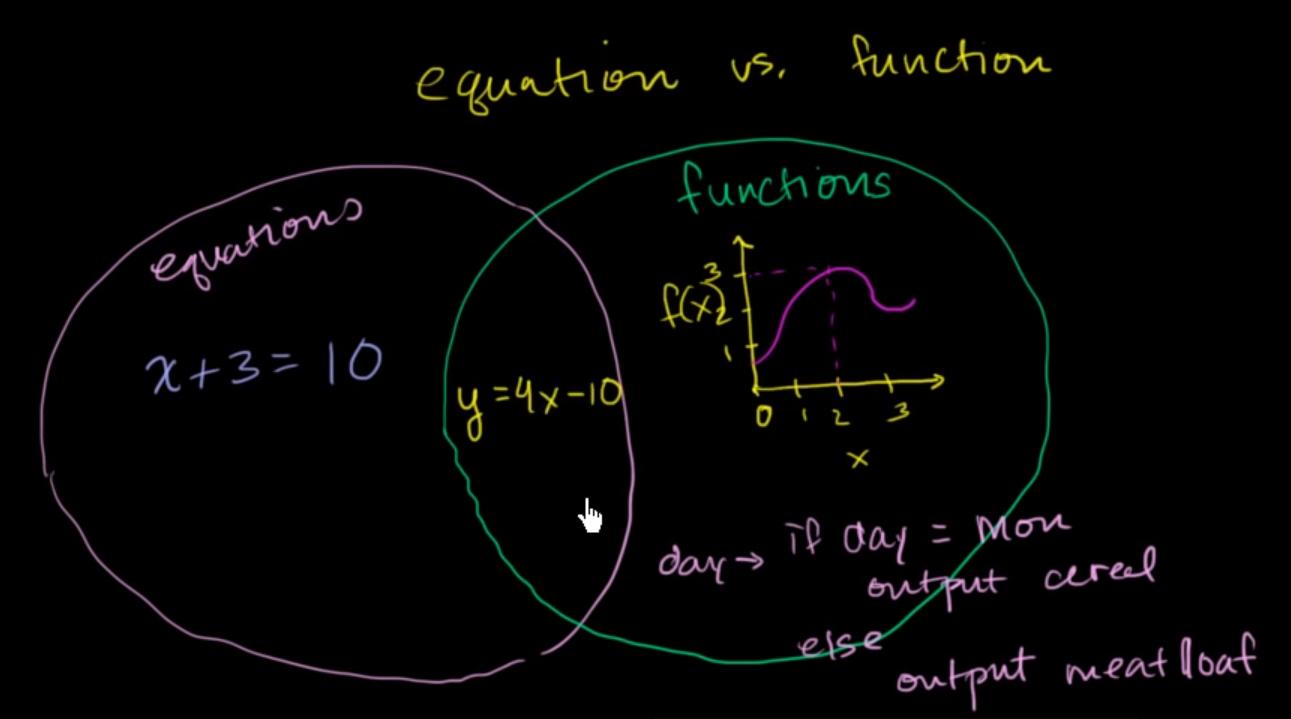 equation vs. function
equations
functions
x+3=10
y=4x-10
f(x)
3
2
1
0 1 2 3
x
day→ if day = Mon
output cereal
else
output meatloaf